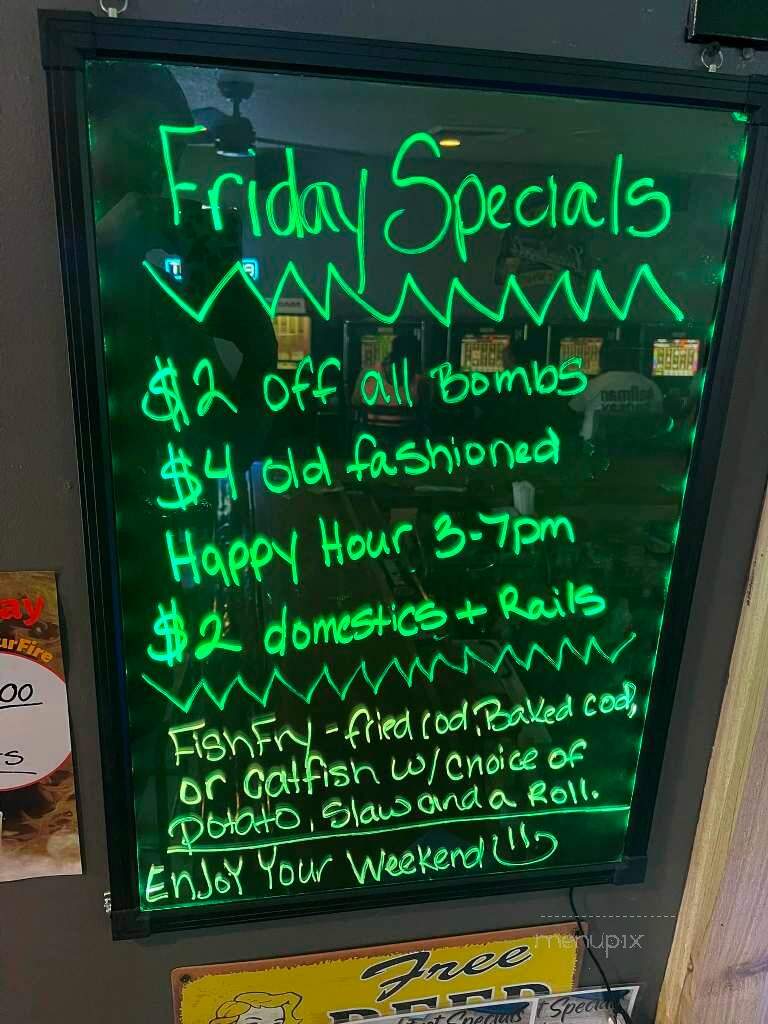 Friday Specials
$2 off all Bombs
$4 old fashioned
Happy Hour 3-7pm
$2 domestics + Rails
Fish Fry - fried cod, Baked cod,
or Catfish w/ choice of
Potato, Slaw and a Roll.
Enjoy Your Weekend
menupix
Free
BEER